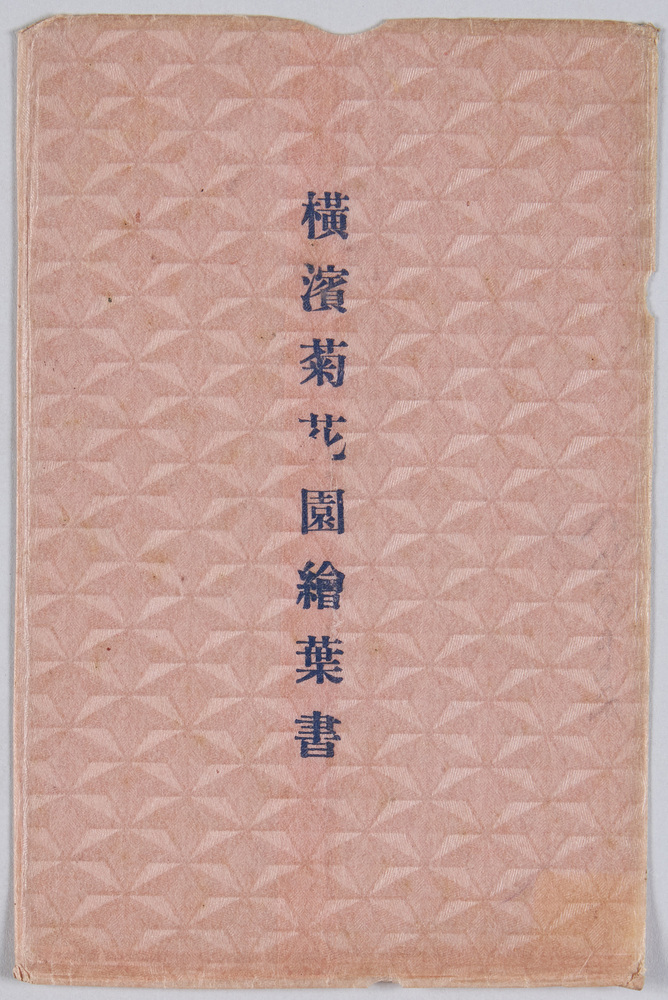 橫濱菊花園繪葉書